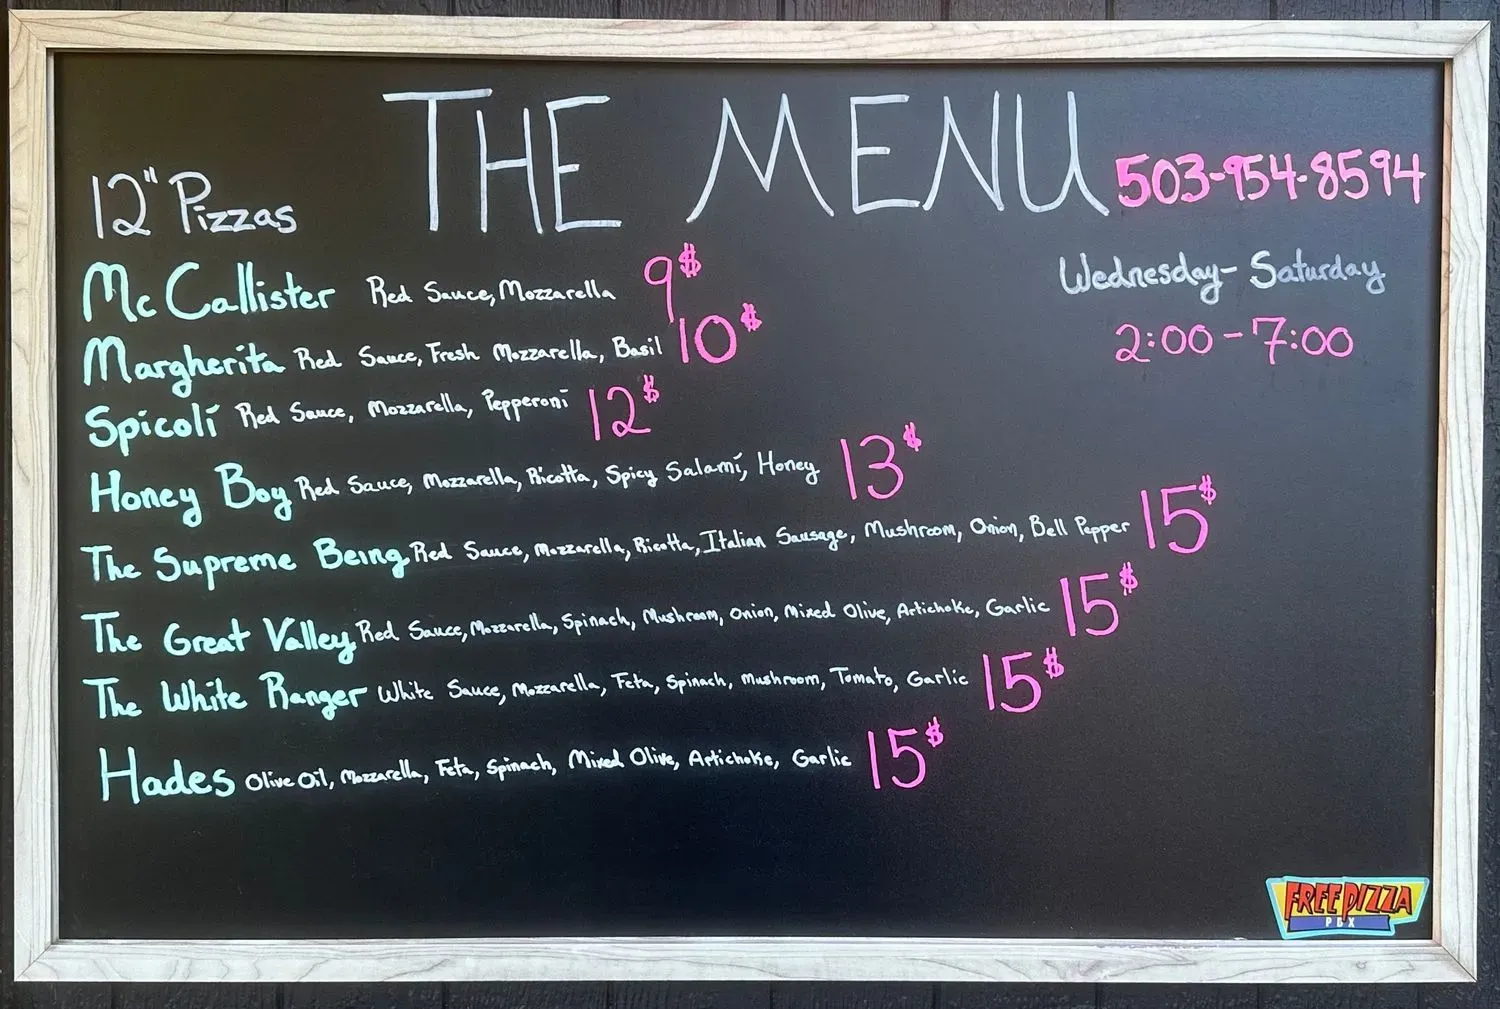 THE MENU
503-954-8594
12" Pizzas
Wednesday - Saturday
2:00 - 7:00
McCallister Red Sauce, Mozzarella 9$
Margherita Red Sauce, Fresh Mozzarella, Basil 10$
Spicoli Red Sauce, Mozzarella, Pepperoni 12$
Honey Boy Red Sauce, Mozzarella, Ricotta, Spicy Salami, Honey 13$
The Supreme Being Red Sauce, Mozzarella, Ricotta, Italian Sausage, Mushroom, Onion, Bell Pepper 15$
The Great Valley Red Sauce, Mozzarella, Spinach, Mushroom, Onion, Mixed Olive, Artichoke, Garlic 15$
The White Ranger White Sauce, Mozzarella, Feta, Spinach, Mushroom, Tomato, Garlic 15$
Hades Olive Oil, Mozzarella, Feta, Spinach, Mixed Olive, Artichoke, Garlic 15$
FREE PIZZA
PDX